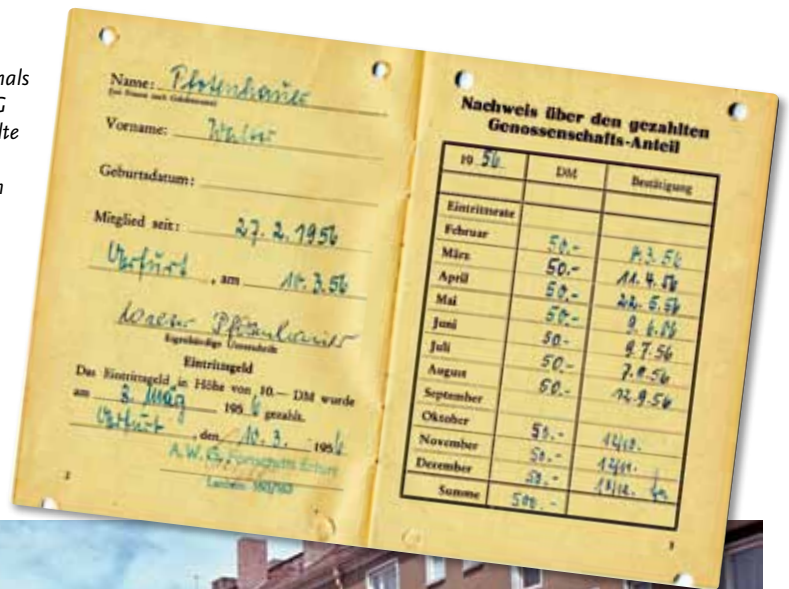 nals
G
lte
n
Name: Pfotenhauer
Vorname: Walter
Geburtsdatum:
Mitglied seit: 27. 2. 1956
Erfurt, am 10. 3. 56
Pfotenhauer
Eigenhändige Unterschrift
Eintrittsgeld
Das Eintrittsgeld in Höhe von 10.— DM wurde
am 8. März 1956 gezahlt.
Erfurt, den 10. 3. 1956
A. W. G. Fortschritt Erfurt
2
Nachweis über den gezahlten
Genossenschafts-Anteil
19 56. DM Bestätigung
Eintrittsrate
Februar 50.- 8.3.56
März 50.- 11.4.56
April 50.- 22.5.56
Mai 50.- 9.6.56
Juni 50.- 9.7.56
Juli 50.- 7.8.56
August 50.- 12.9.56
September
Oktober 50.- 12/10.
November 50.- 12/11.
Dezember 50.- 13/12.
Summe 500.-
3